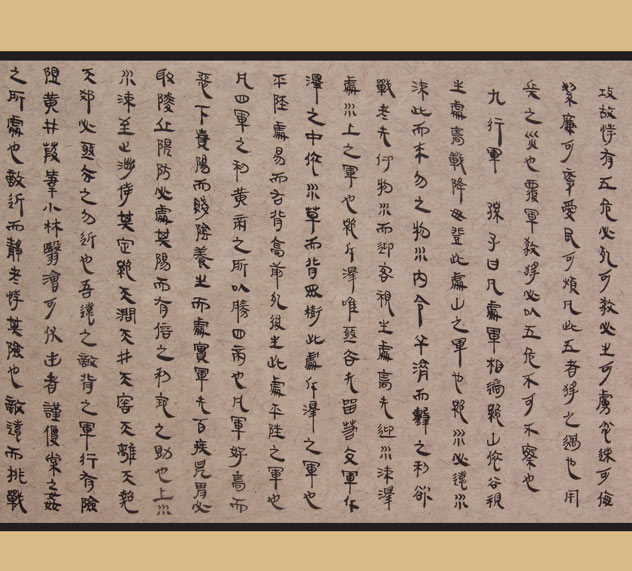 攻故将有五危必死可殺必生可虜忿速可侮
絜廉可辱愛民可煩凡此五者将之過也用
兵之災也覆軍殺将必以五危不可不察也
九行軍　孫子曰凡處軍相敵絕山依谷視
生處高戰降毋登此處山之軍也絕水必遠水
而來勿之於水內令半濟而擊之利欲
戰者无付於水而迎客視生處高无迎水
處水上之軍也絕斥澤唯亟去无留若交軍斥
澤之中依水草而背衆樹此處斥澤之軍也
平陸處易而右背高前死後生此處平陸之軍也
凡四軍之利黃帝之所以勝四帝也凡軍好高而
惡下貴陽而賤陰養生而處實軍无百疾是胃必
陵丘隄防必處其陽而右倍之利地之助也上水
水沫至止涉待其定絕天澗天井天窖天離天
天郄必亟去之勿近也吾遠之敵背之軍行有險
阻黃井葭葦小林翳澮可伏匿者謹復索之姦
之所處也敵近而靜者恃其險也敵遠而挑戰